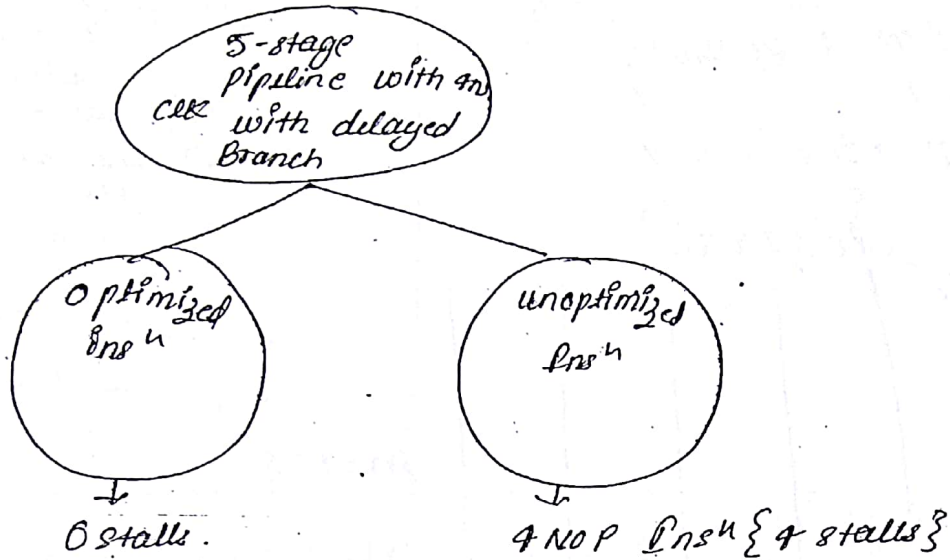 5-stage
pipeline with 4n
clk with delayed
Branch
Optimized
insⁿ
unoptimized
Insⁿ
0 stalls.
4 NOP Insⁿ { 4 stalls }